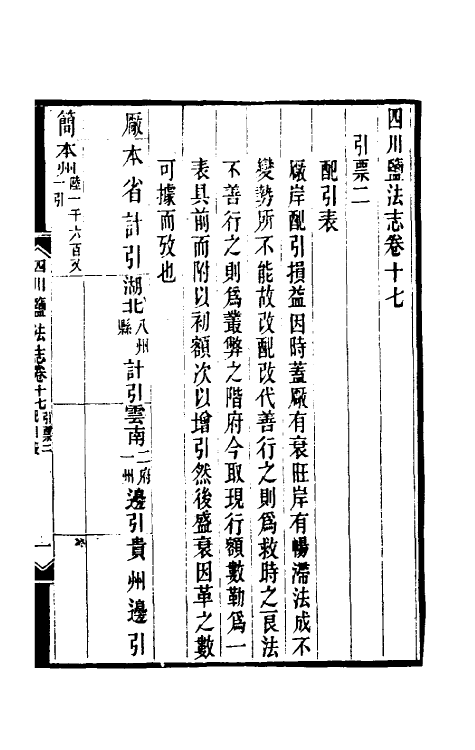 四川鹽法志卷十七
引票二
配引表
廠岸配引損益因時蓋廠有衰旺岸有暢滯法成不
變勢所不能故改配改代善行之則爲救時之良法
不善行之則爲叢弊之階府今取現行額數勒爲一
表具前而附以初額次以增引然後盛衰因革之數
可據而攷也
廠本省計引湖北八州縣計引雲南二府一州邊引貴州邊引
簡本州陸一千六百
一引
四川鹽法志卷十七 引票二
一